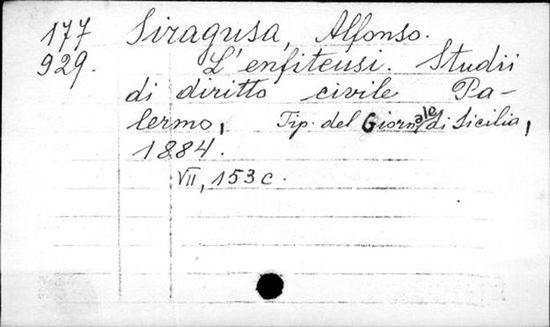 177 Siragusa, Alfonso.
929. L'enfiteusi. Studii
di diritto civile Pa-
lermo, Tip. del Giornale di Sicilia,
1884.
VII, 153 c.